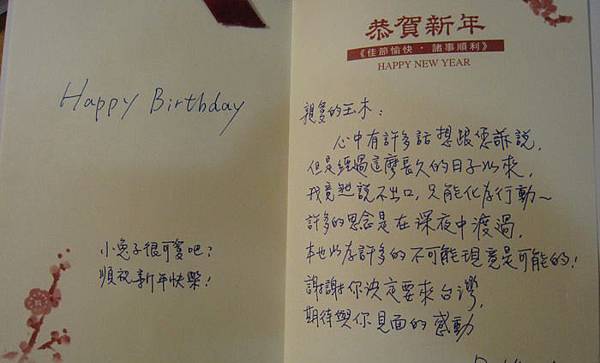 Happy Birthday
小兔子很可愛吧?
順祝新年快樂!
恭賀新年
《佳節愉快·諸事順利》
HAPPY NEW YEAR
親愛的玉木:
心中有許多話想跟您訴說,
但是經過這麼長久的日子以來,
我竟然說不出口,只能化為行動~
許多的思念是在深夜中渡過,
許多的不可能現竟是可能的!
謝謝你決定要來台灣,
期待與你見面的感動